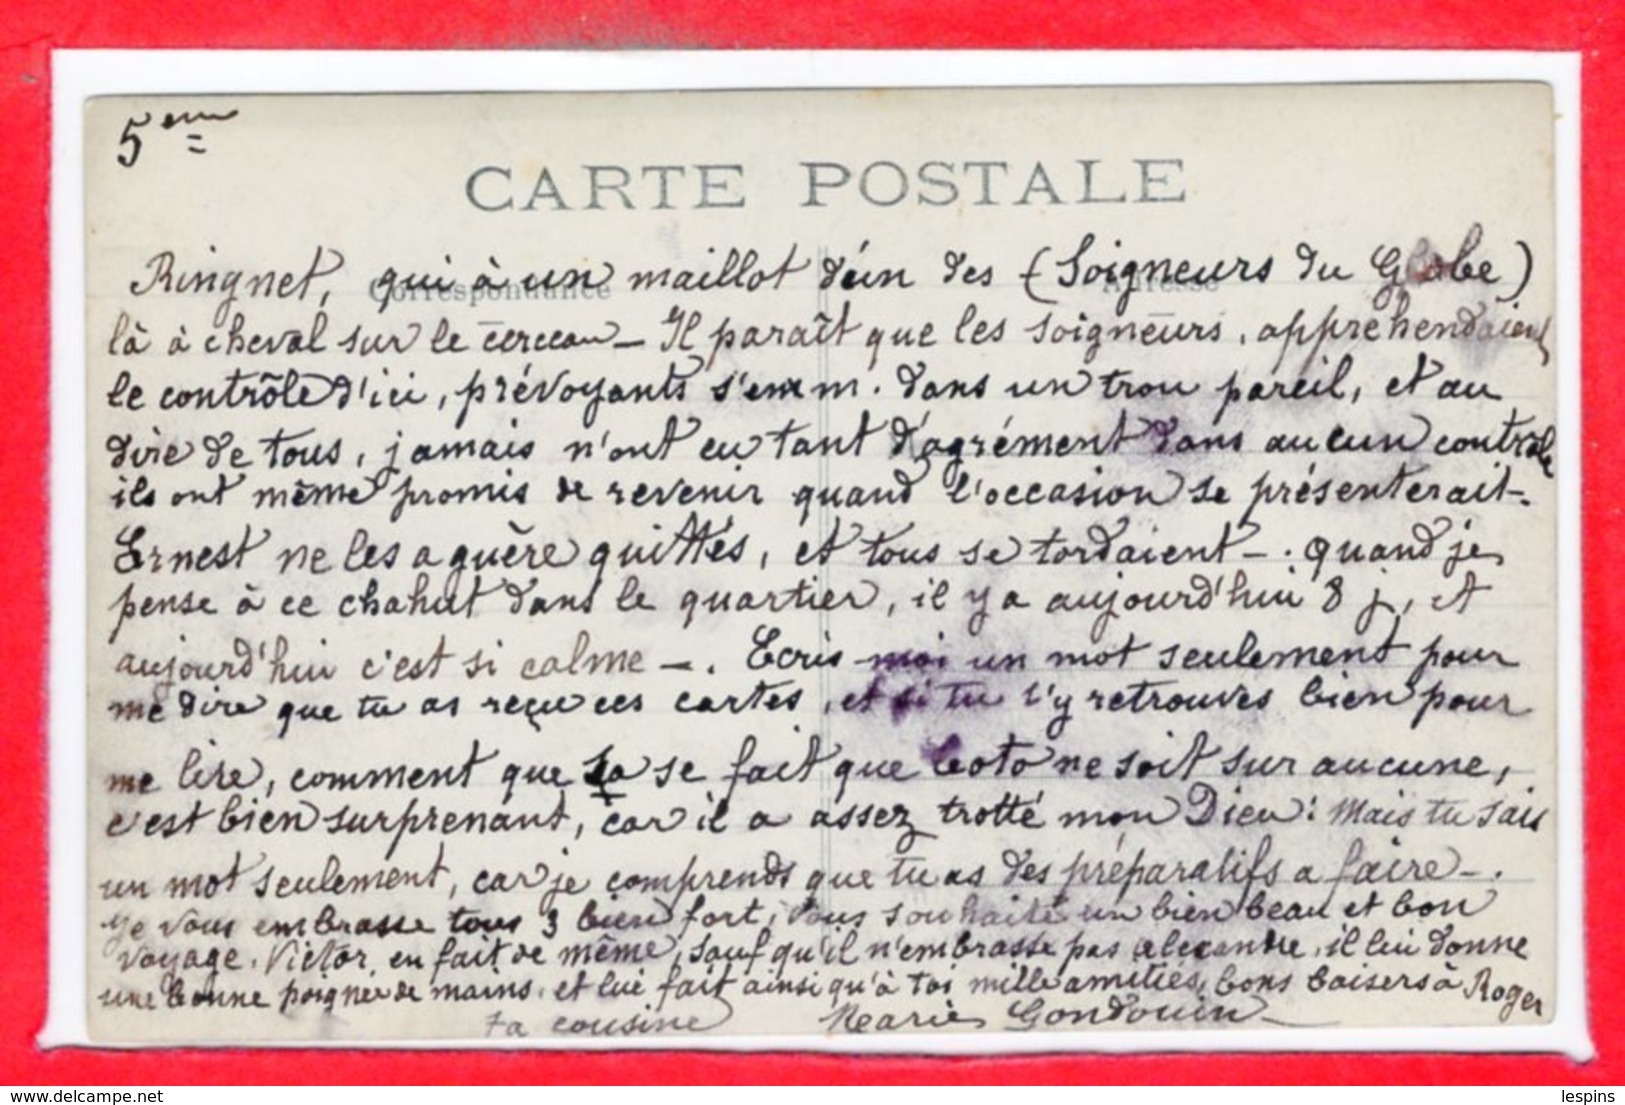 5em
CARTE POSTALE
Correspondance
Adresse
Ringnet, qui à un maillot d'un des (Soigneurs du Globe)
là à cheval sur le cerceau – Il paraît que les soigneurs, appréhendaient
le contrôle d'ici, prévoyants s'emm. dans un trou pareil, et au
dire de tous, jamais n'ont eu tant d'agrément dans aucun contrôle
ils ont même promis de revenir quand l'occasion se présenterait –.
Ernest ne les a guère quittés, et tous se tordaient –. Quand je
pense à ce chahut dans le quartier, il y a aujourd'hui 8 j, et
aujourd'hui c'est si calme –. Ecris moi un mot seulement pour
me dire que tu as reçu ces cartes, et si tu t'y retrouves bien pour
me lire, comment que sa se fait que Toto ne soit sur aucune,
c'est bien surprenant, car il a assez trotté mon Dieu! Mais tu sais
un mot seulement, car je comprends que tu as des préparatifs a faire –.
Je vous embrasse tous 3 bien fort, vous souhaite un bien beau et bon
voyage. Victor, en fait de même, sauf qu'il n'embrasse pas Alexandre, il lui donne
une bonne poignée de mains, et lui fait ainsi qu'à toi mille amitiés, bons baisers à Roger
ta cousine Marie Gondouin
lespins